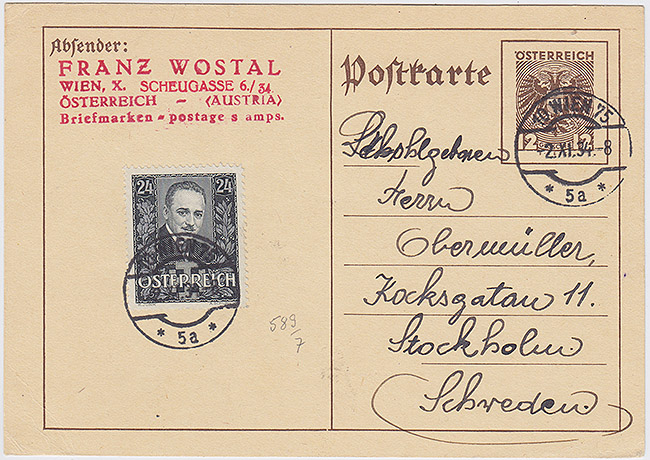 Absender:
FRANZ WOSTAL
WIEN, X. SCHEUGASSE 6./34
ÖSTERREICH - (AUSTRIA)
Briefmarken - postage s amps.
Postkarte
ÖSTERREICH
12
10 WIEN 75
-2.XI.34.-8
* 5a *
Herrn
Obermüller,
Kocksgatan 11.
Stockholm.
Schweden.
24 24
ÖSTERREICH
WIEN
* 5a *
589/7